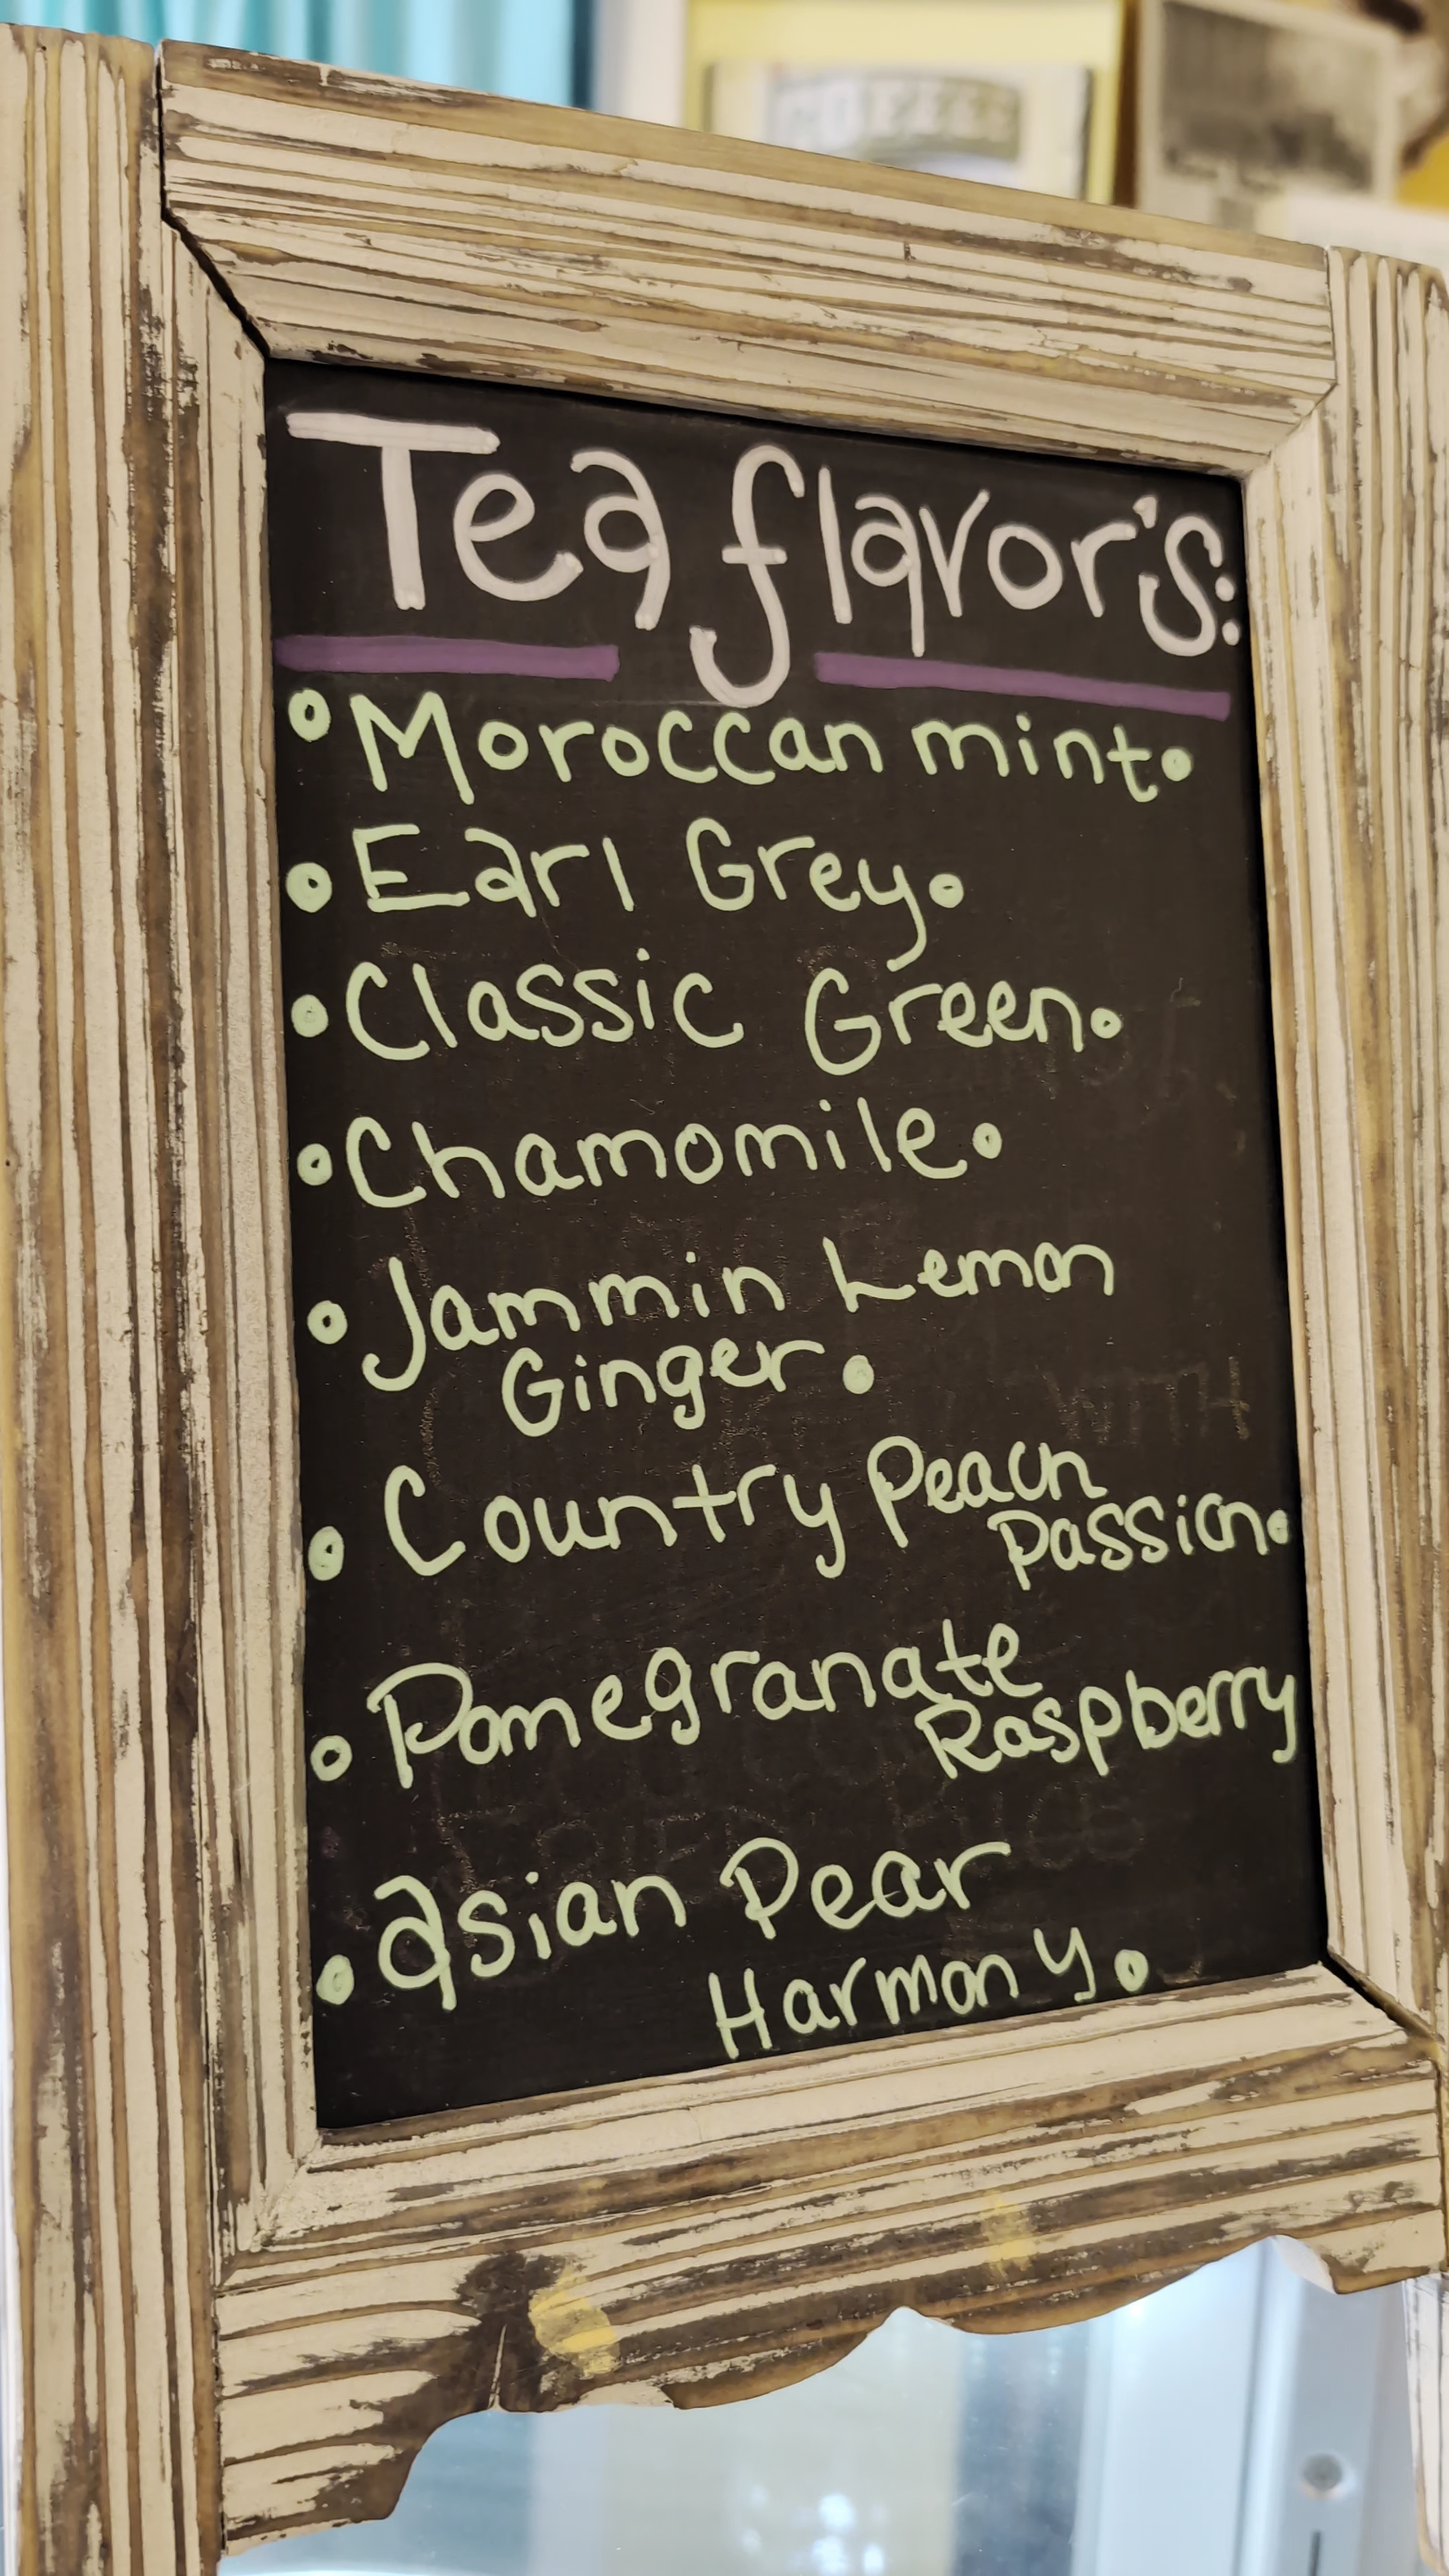 COFFEE
Tea flavor's:
• Moroccan mint•
• Earl Grey•
• Classic Green•
• Chamomile•
• Jammin Lemon
Ginger•
• Country Peach
Passion•
• Pomegranate
Raspberry
• Asian Pear
Harmony•
WITH